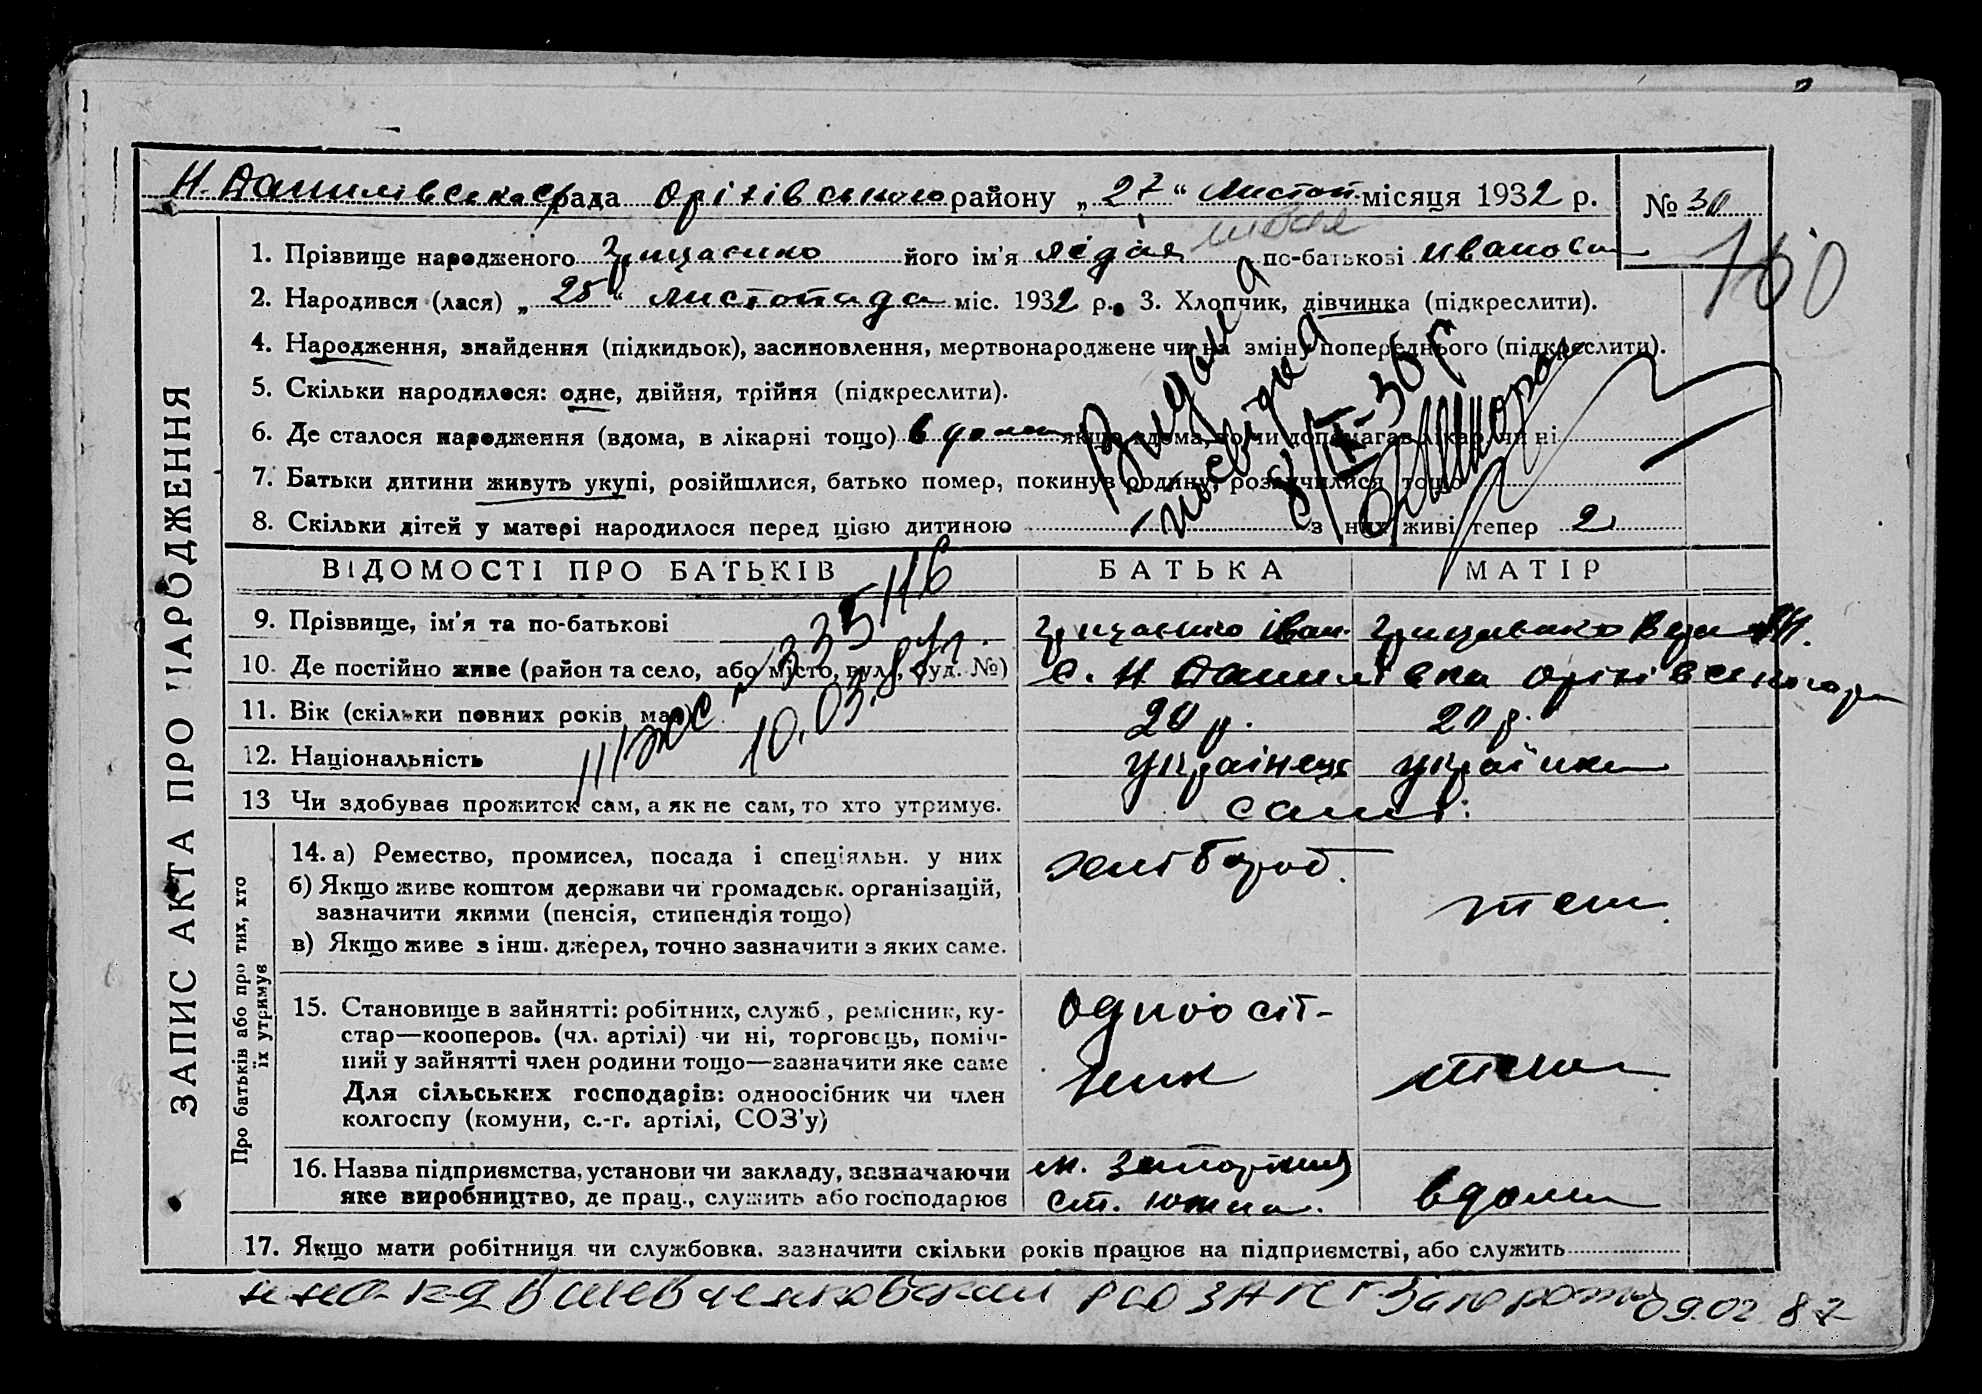 Н. Данилівська с/рада Оріхівського району „27“ листоп. місяця 1932 р. № 30
160
1. Прізвище народженого Грицаенко його ім'я Лідія по-батькові Ивановна
2. Народився (лася) „25“ листопада міс. 1932 р. 3. Хлопчик, дівчинка (підкреслити).
4. Народження, знайдення (підкидьок), засиновлення, мертвонароджене чи на зміну попереднього (підкреслити).
5. Скільки народилося: одне, двійня, трійня (підкреслити).
6. Де сталося народження (вдома, в лікарні тощо) вдома якщо вдома, то чи допомагав лікар, чи ні
7. Батьки дитини живуть укупі, розійшлися, батько помер, покинув родину, розлучилися тощо
8. Скільки дітей у матері народилося перед цією дитиною з них живі тепер 2
Видана
посвідка
ЗАПИС АКТА ПРО НАРОДЖЕННЯ
ВІДОМОСТІ ПРО БАТЬКІВ БАТЬКА МАТІР
9. Прізвище, ім'я та по-батькові Грицаенко Іван Грицаенко Вера
10. Де постійно живе (район та село, або місто, вул., буд. №) с. Н Данилівка Оріхівського р
11. Вік (скільки повних років має) 20 р. 20 р.
12. Національність українець українка
13 Чи здобував прожиток сам, а як не сам, то хто утримує. самі
III ЖС № 335116
10.03.87г.
Про батьків або про тих, хто їх утримує
14. а) Ремество, промисел, посада і спеціяльн. у них хлібороб. теж
б) Якщо живе коштом держави чи громадськ. організацій,
зазначити якими (пенсія, стипендія тощо)
в) Якщо живе з інш. джерел, точно зазначити з яких саме.
15. Становище в зайнятті: робітник, служб., ремісник, ку-
стар—кооперов. (чл. артілі) чи ні, торговець, поміч-
ний у зайнятті член родини тощо—зазначити яке саме
Для сільських господарів: одноосібник чи член
колгоспу (комуни, с.-г. артілі, СОЗ'у)
одноосіб-
ник
16. Назва підприємства, установи чи закладу, зазначаючи м. Запоріжжя
яке виробництво, де прац., служить або господарює ст. Южна. вдома
17. Якщо мати робітниця чи службовка, зазначити скільки років працює на підприємстві, або служить
в Шевченковский РСО ЗАГС г Запорожья 09.02 87